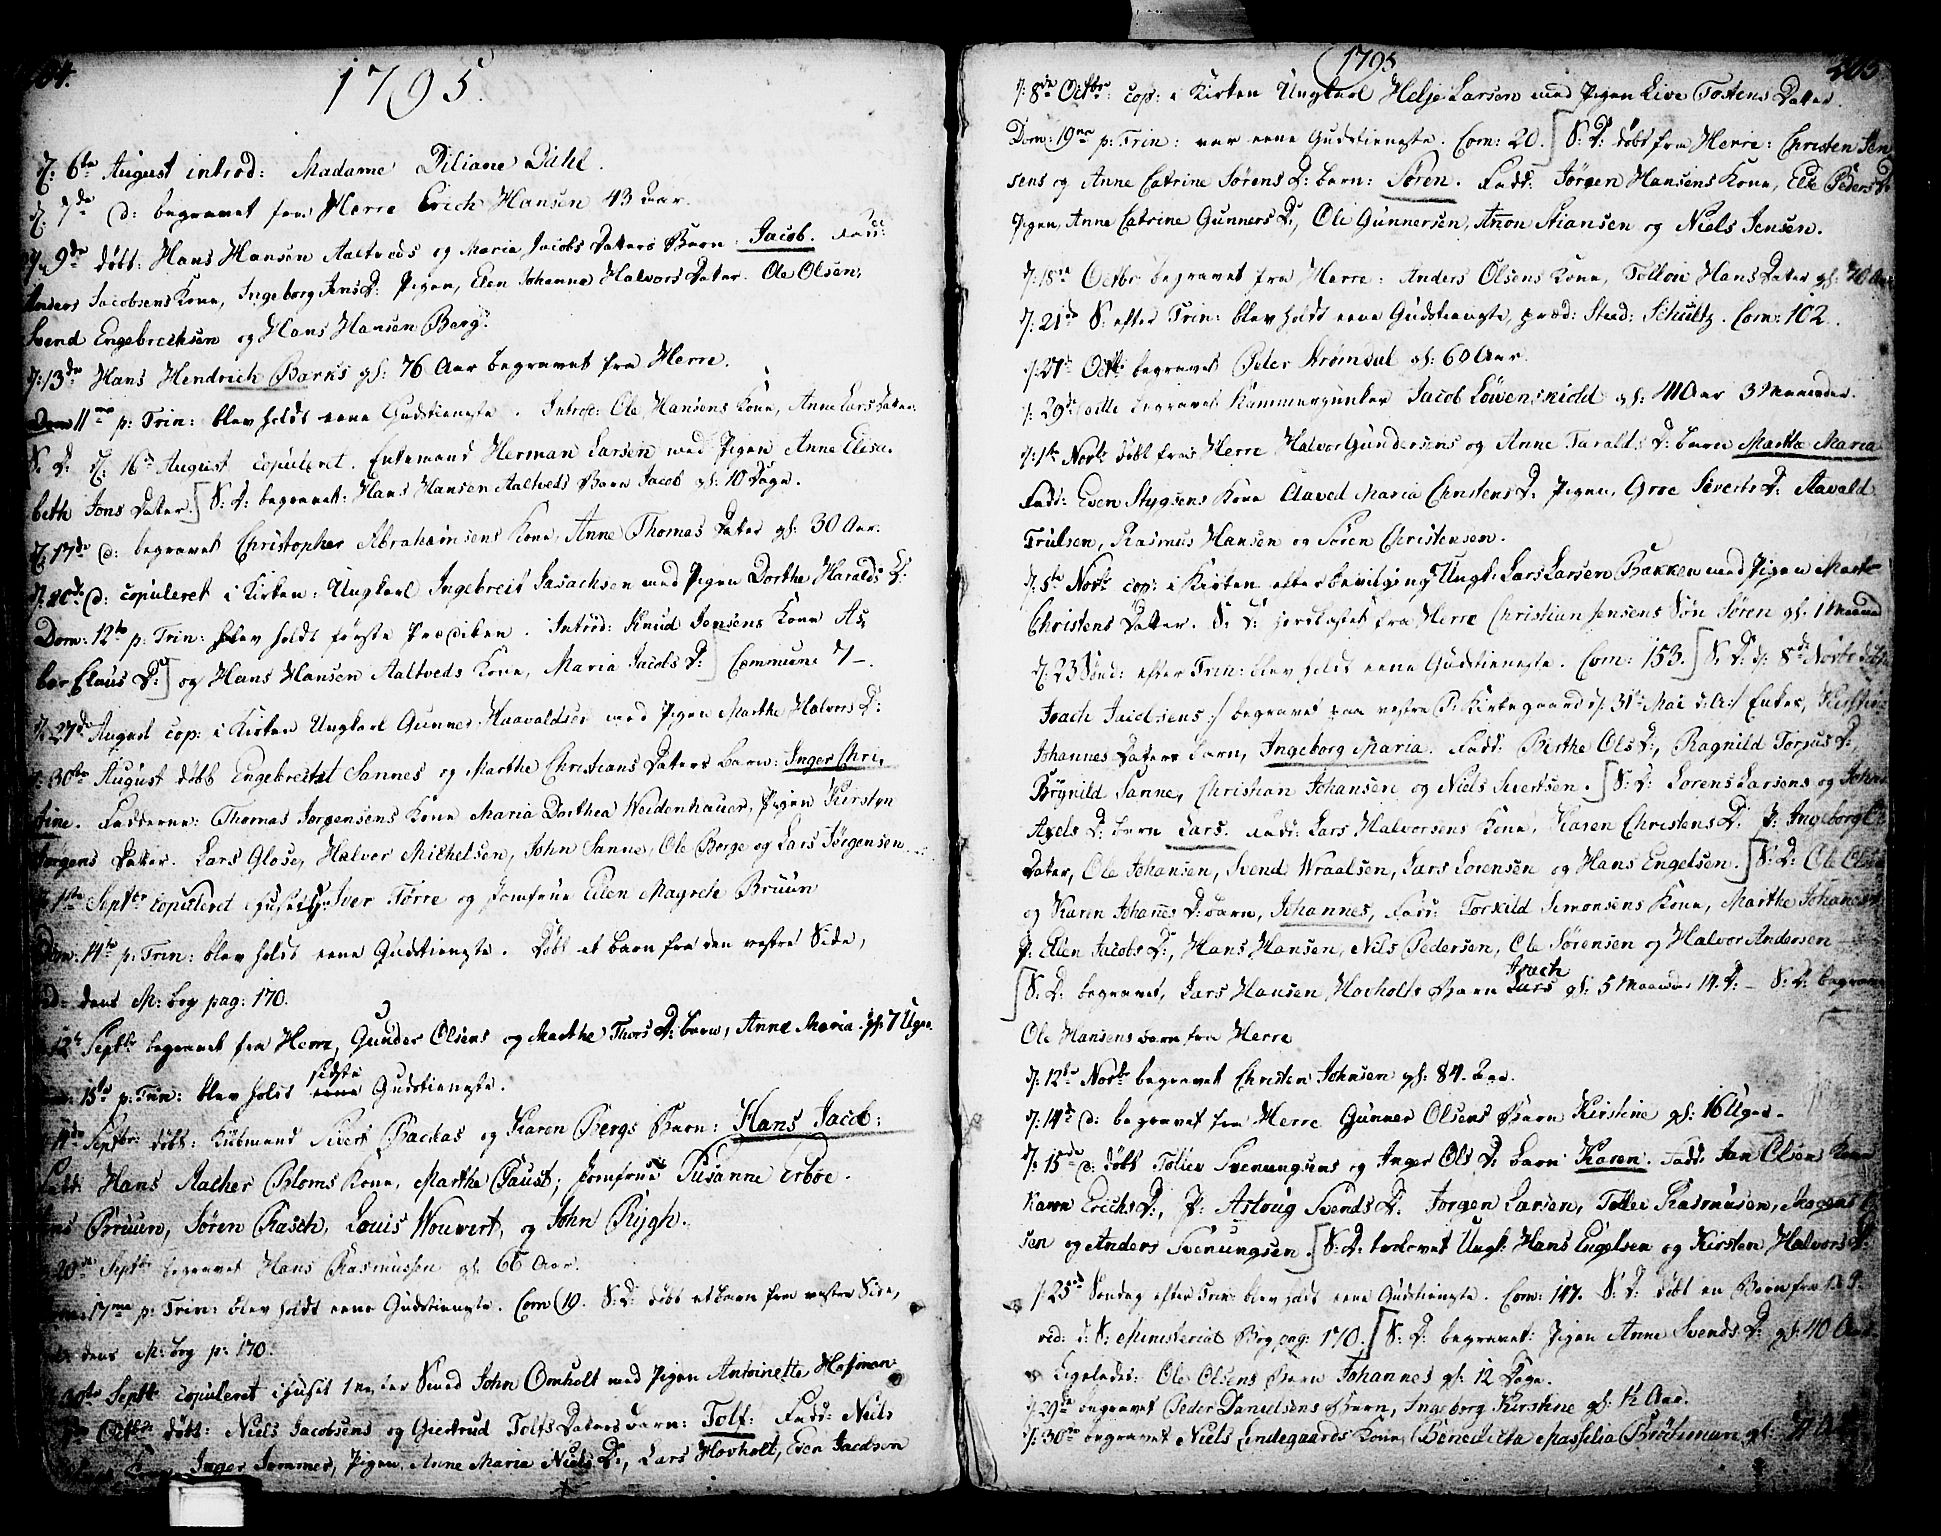 1795.
d: 6te August introd: Madame Diliane Dahl.
d: 7de d: begravet fra Herre Erich Hansen 43 Aar.
d: 9de døbt: Hans Hansen Aaltveds og Maria Jacobs Datters Barn: Jacob. Fadd:
Anders Jacobsens Kone, Ingeborg Jens D: Pigen, Elen Johanne Halvors Datter. Ole Olsen,
Svend Engebrechsen og Hans Hansen Berg.
d: 13de Hans Hendrich Barks gl: 76 Aar begravet fra Herre.
Dom 11me p: Trin: blev holdt eene Gudstieneste. Introd: Ole Hansens Kone, Anne Lars Datter.
S: D: d: 16de August copuleret. Enkemand Herman Larsen med Pigen Anne Elisa-
beth Jons Datter. S: D: begravet: Hans Hansen Aaltveds Barn Jacob gl: 10 Dage.
d: 17de d: begravet Christopher Abrahamsens Kone, Anne Thomas Datter gl: 30 Aar.
d: 20de d: copuleret i Kirken: Ungkarl Ingebreth Isachsen med Pigen Dorthe Haralds D:
Dom: 12te p: Trin: blev holdt første Prædiken. Introd: Knud Jensens Kone As-
bor Claus D: og Hans Hansen Aaltveds Kone, Maria Jacobs D: Commune 7 -.
d: 27de August cop: i Kirken Ungkarl Gunner Haavaldsen med Pigen Marthe Halvors D:
d: 30te August døbt Engebrecht Sannes og Marthe Christians Datters barn: Inger Chri-
stine. Fadderne: Thomas Jørgensens Kone Maria Dorthea Weidenhauer, Pigen Kirsten
Jørgens Datter. Lars Glose, Halvor Michelsen, John Sanne, Ole Borge og Lars Jørgensen.
d: 1ste Septbr copuleret i Huset Iver Tørre og Jomfrue Elen Magreth Bruun
Dom: 14te p: Trin: blev holdt eene Gudstieneste. Døbt et barn fra den vestre Side,
vid: dens M: bog pag: 170.
12te Septbr begravet fra Herre, Gunder Olsens og Marthe Thors D: barn, Anne Maria gl: 7 Uger.
15de p: Trin: blev holdt sidste Gudstieneste.
14de Septbr døbt: Kiøbmand Sivert Backas og Karen Bergs Barn: Hans Jacob:
Fadd: Hans Aacher Bloms Kone, Marthe Faust, Jomfrue Susanne Erboe.
Bruun, Søren Rasch, Louis Wouvert, og John Rygh.
20de Septbr begravet Hans Rasmussen gl: 66 Aar.
17me p: Trin: blev holdt eene Gudstieneste. Com 19. S: D: døbt et barn fra vestre Side,
dens M: bog p: 170.
Septbr copuleret i Huset John Omholt med Pigen Antoinette Hofman
Octbr døbt: Niels Jacobsens og Giertrud Tolfs Datters barn: Tolf: Fadd: Niels
Inger Sommer, Pigen Anne Maria Niels D:, Lars Hovholt, Even Jacobsen
1795
d: 8de Octbr: cop: i Kirken Ungkarl Helje Larsen med Pigen Live Tostens Datter.
Dom: 19me p: Trin: var eene Gudstieneste. Com: 20. S: D: døbt fra Herre: Christen Jen-
sens og Anne Catrine Sørens D: barn: Søren. Fadd: Jørgen Hansens Kone, Else Peders D:
Pigen, Anne Catrine Gunners D:, Ole Gunnersen, Anon Stiansen og Niels Jensen.
d: 18de Octbr begravet fra Herre: Anders Olsens Kone, Tollon Hans Datter gl: 70 Aar
d: 21de S: efter Trin: blev holdt eene Gudstieneste, præd: Stud: Schultz. Com: 102.
d: 27de Octbr begravet Peter Strømdal gl: 60 Aar.
d: 29de begravet Kammerjunker Jacob Löwenskiold gl: 41 Aar 3 Maaneder.
d: 1ste Novbr døbt fra Herre Halvor Gundersens og Anne Taralds D: barn Marthe Maria
Fadd: Even Stygsens Kone Aaved Maria Christens D: Pigen, Groe Siverts D: Aavald
Trulsen, Rasmus Hansen og Søren Christensen.
d: 5te Novbr cop: i Kirken efter bevilgning Ungk: Lars Larsen Bakken med Pigen Marthe
Christens Datter. S: D: jordfæstet fra Herre Christian Jensens Søn Søren gl: 1 Maaned
d: 23 Sønd: efter Trin: blev holdt eene Gudstieneste. Com: 153. S: D: d: 8de Novbr døbt
Isach Jacobsens :/ begravet paa vestre P: Kirkegaard d: 31te Mai d: A: / Enkes, Kirstine
Johannes Datters barn, Ingeborg Maria. Fadd: Berthe Ols D:, Ragnild Torjus D:
Brynild Sanne, Christian Johansen og Niels Sivertsen. S: D: Lorens Larsens og Johanne
Axels D: barn Lars. Fadd: Lars Halvorsens Kone, Karen Christens D: P: Ingeborg
Datter, Ole Johansen, Svend Wraalsen, Lars Lorensen og Hans Engelsen. S: D: Ole Olsens
og Karen Johannes D: barn, Johannes, Fadd: Torkild Simonsens Kone, Marthe Johannes D:
P: Ellen Jacobs D:, Hans Hansen, Nils Pedersen, Ole Sørensen og Halvor Andersen
S: D: begravet, Lars Hansen Hovholts Barn Isach gl: 5 Maaneder 14 D: - S: D: begravet
Ole Hansens barn fra Herre
d: 12te Novbr begravet Christen Johnsen gl: 84 Aar.
d: 14de d: begravet fra Herre Gunner Olsens Barn Kirstine gl: 16 Uger.
d: 15de d: døbt Tollev Svenungsens og Inger Ols D: barn Karen. Fadd: Jan Olsens Kone
Karen Erichs D:, P: Aslaug Svends D: Jørgen Larsen, Tollev Rasmusen, Mogens
sen og Anders Svenungsen. S: D: trolovet Ungk: Hans Engelsen og Kirsten Halvors D:
d: 25de Søndag efter Trin: blev holdt eene Gudstieneste. Com: 147. S: D: døbt en Barn fra
vid: d: S: Ministerial Bog pag: 170. S: D: begravet: Pigen Anne Svends D: gl: 40 Aar
Ligeledes: Ole Olsens Barn Johannes gl: 12 Dage.
d: 29de begravet Peder Danielsens Barn, Ingeborg Kirstine gl: ½ Aar.
d: 30te begravet Niels Lindegaards Kone, Benedicta Massilia Brötzman gl: